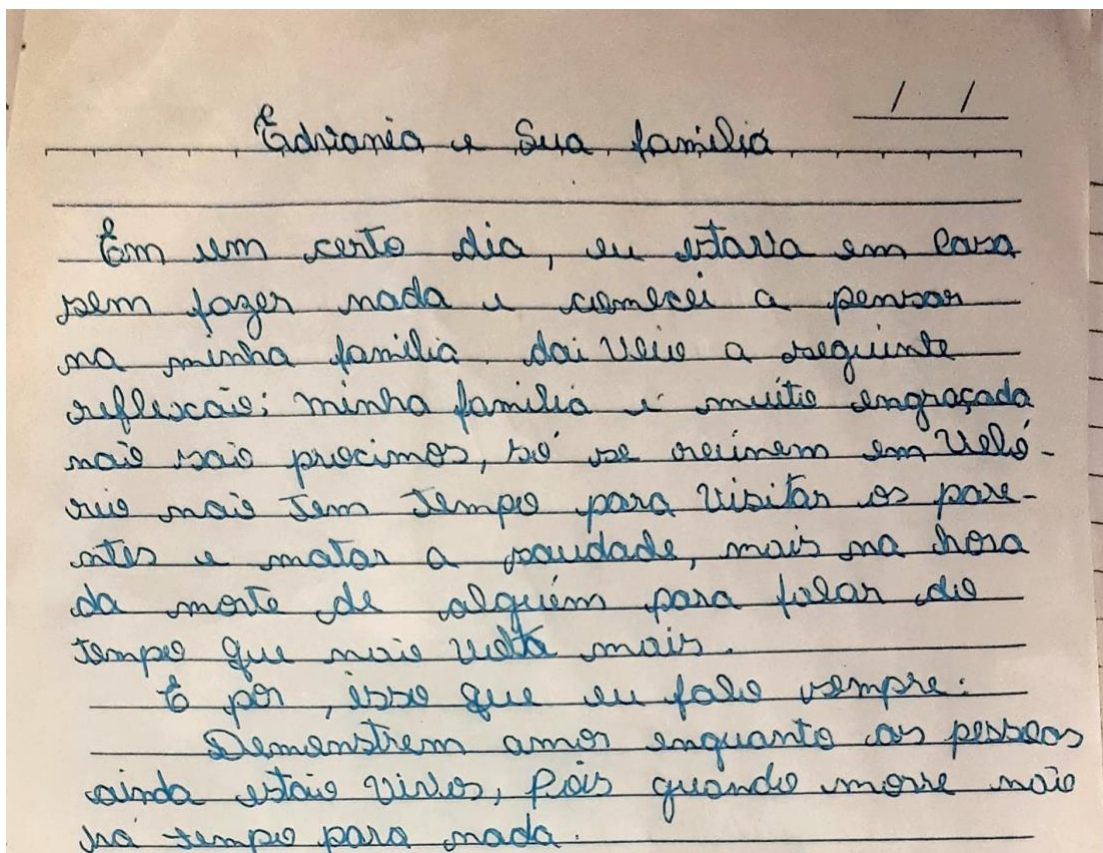 / /
Edriania e Sua família
Em um certo dia, eu estava em casa
sem fazer nada e comecei a pensar
na minha família. dai veio a seguinte
reflexcão; minha família é muito engraçada
não são procimos, só se reúnem em Veló-
rio não tem tempo para visitar os pare-
ntes e matar a saudade, mais na hora
da morte de alguém para falar do
tempo que não volta mais.
É por, isso que eu falo sempre:
Demonstrem amor enquanto as pessoas
ainda estão vivos, Pois quando morre não
há tempo para nada.